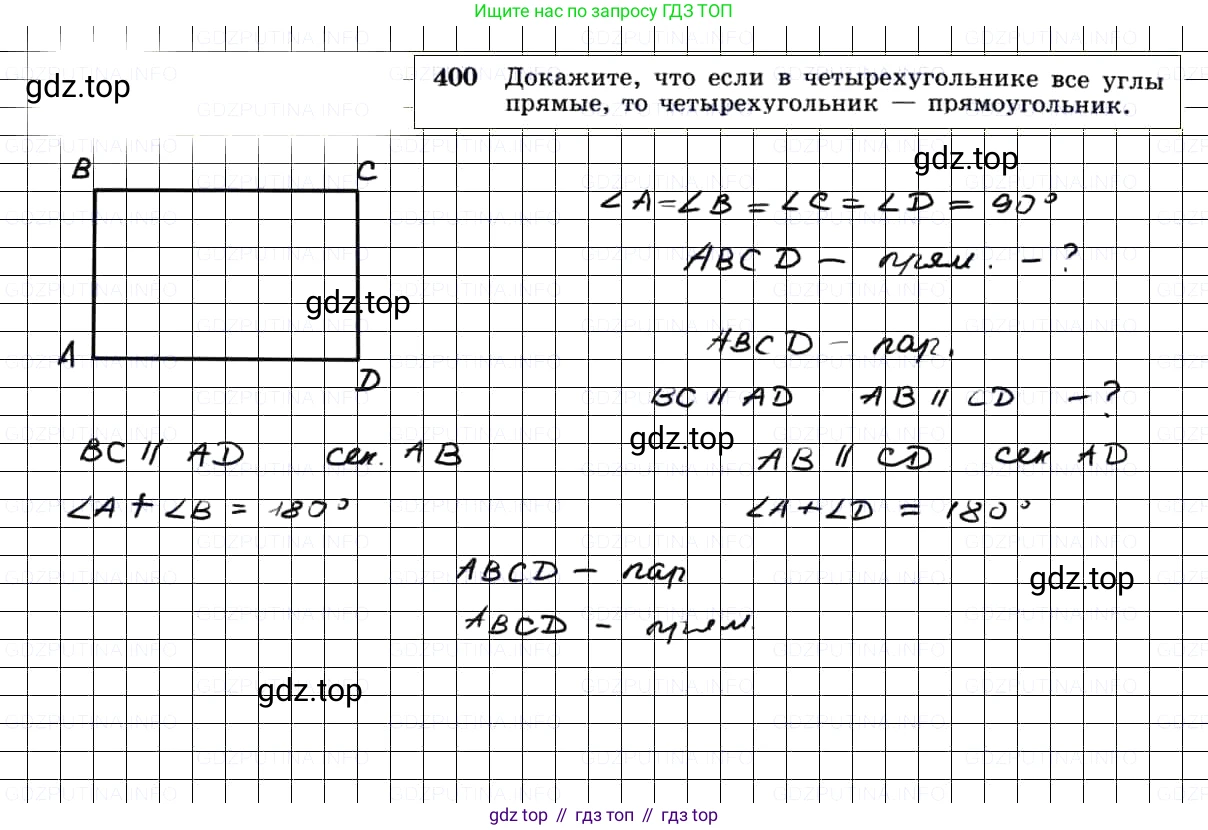 Ищите нас по запросу ГДЗ ТОП
gdz.top
400 Докажите, что если в четырехугольнике все углы
прямые, то четырехугольник — прямоугольник.
gdz.top
B C
∠A=∠B = ∠C = ∠D = 90°
ABCD — прям. - ?
gdz.top
ABCD — пар.
A D
BC // AD AB // CD - ?
gdz.top
BC // AD сек. AB
AB // CD сек AD
∠A + ∠B = 180°
∠A + ∠D = 180°
ABCD — пар
gdz.top
ABCD - прям.
gdz.top
gdz top // гдз топ // гдз top
GDZPUTINA.INFO